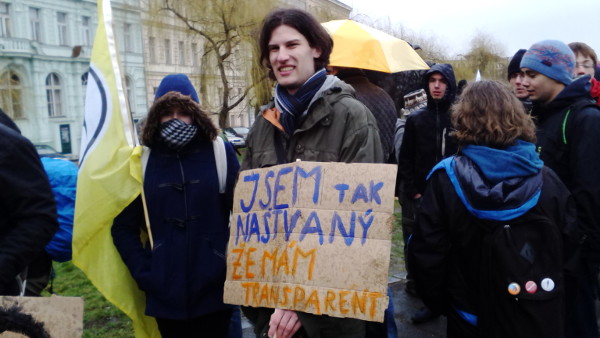 JSEM TAK
NAŠTVANÝ
ŽE MÁM
TRANSPARENT